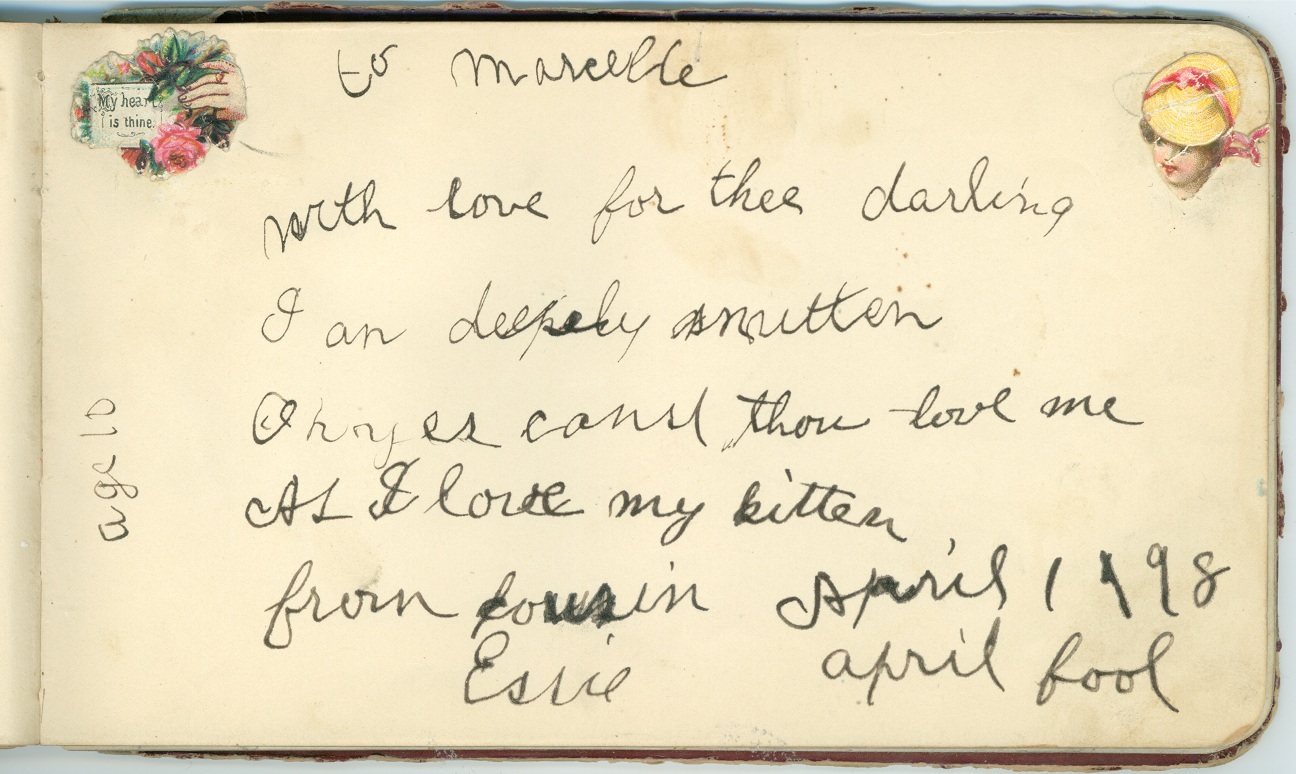 My heart
is thine.
to Marcelle
with love for thee darling
I an deepely smitten
Oh yes canst thou love me
As I love my kitten
from cousin April 1 98
Essie april fool
age 10